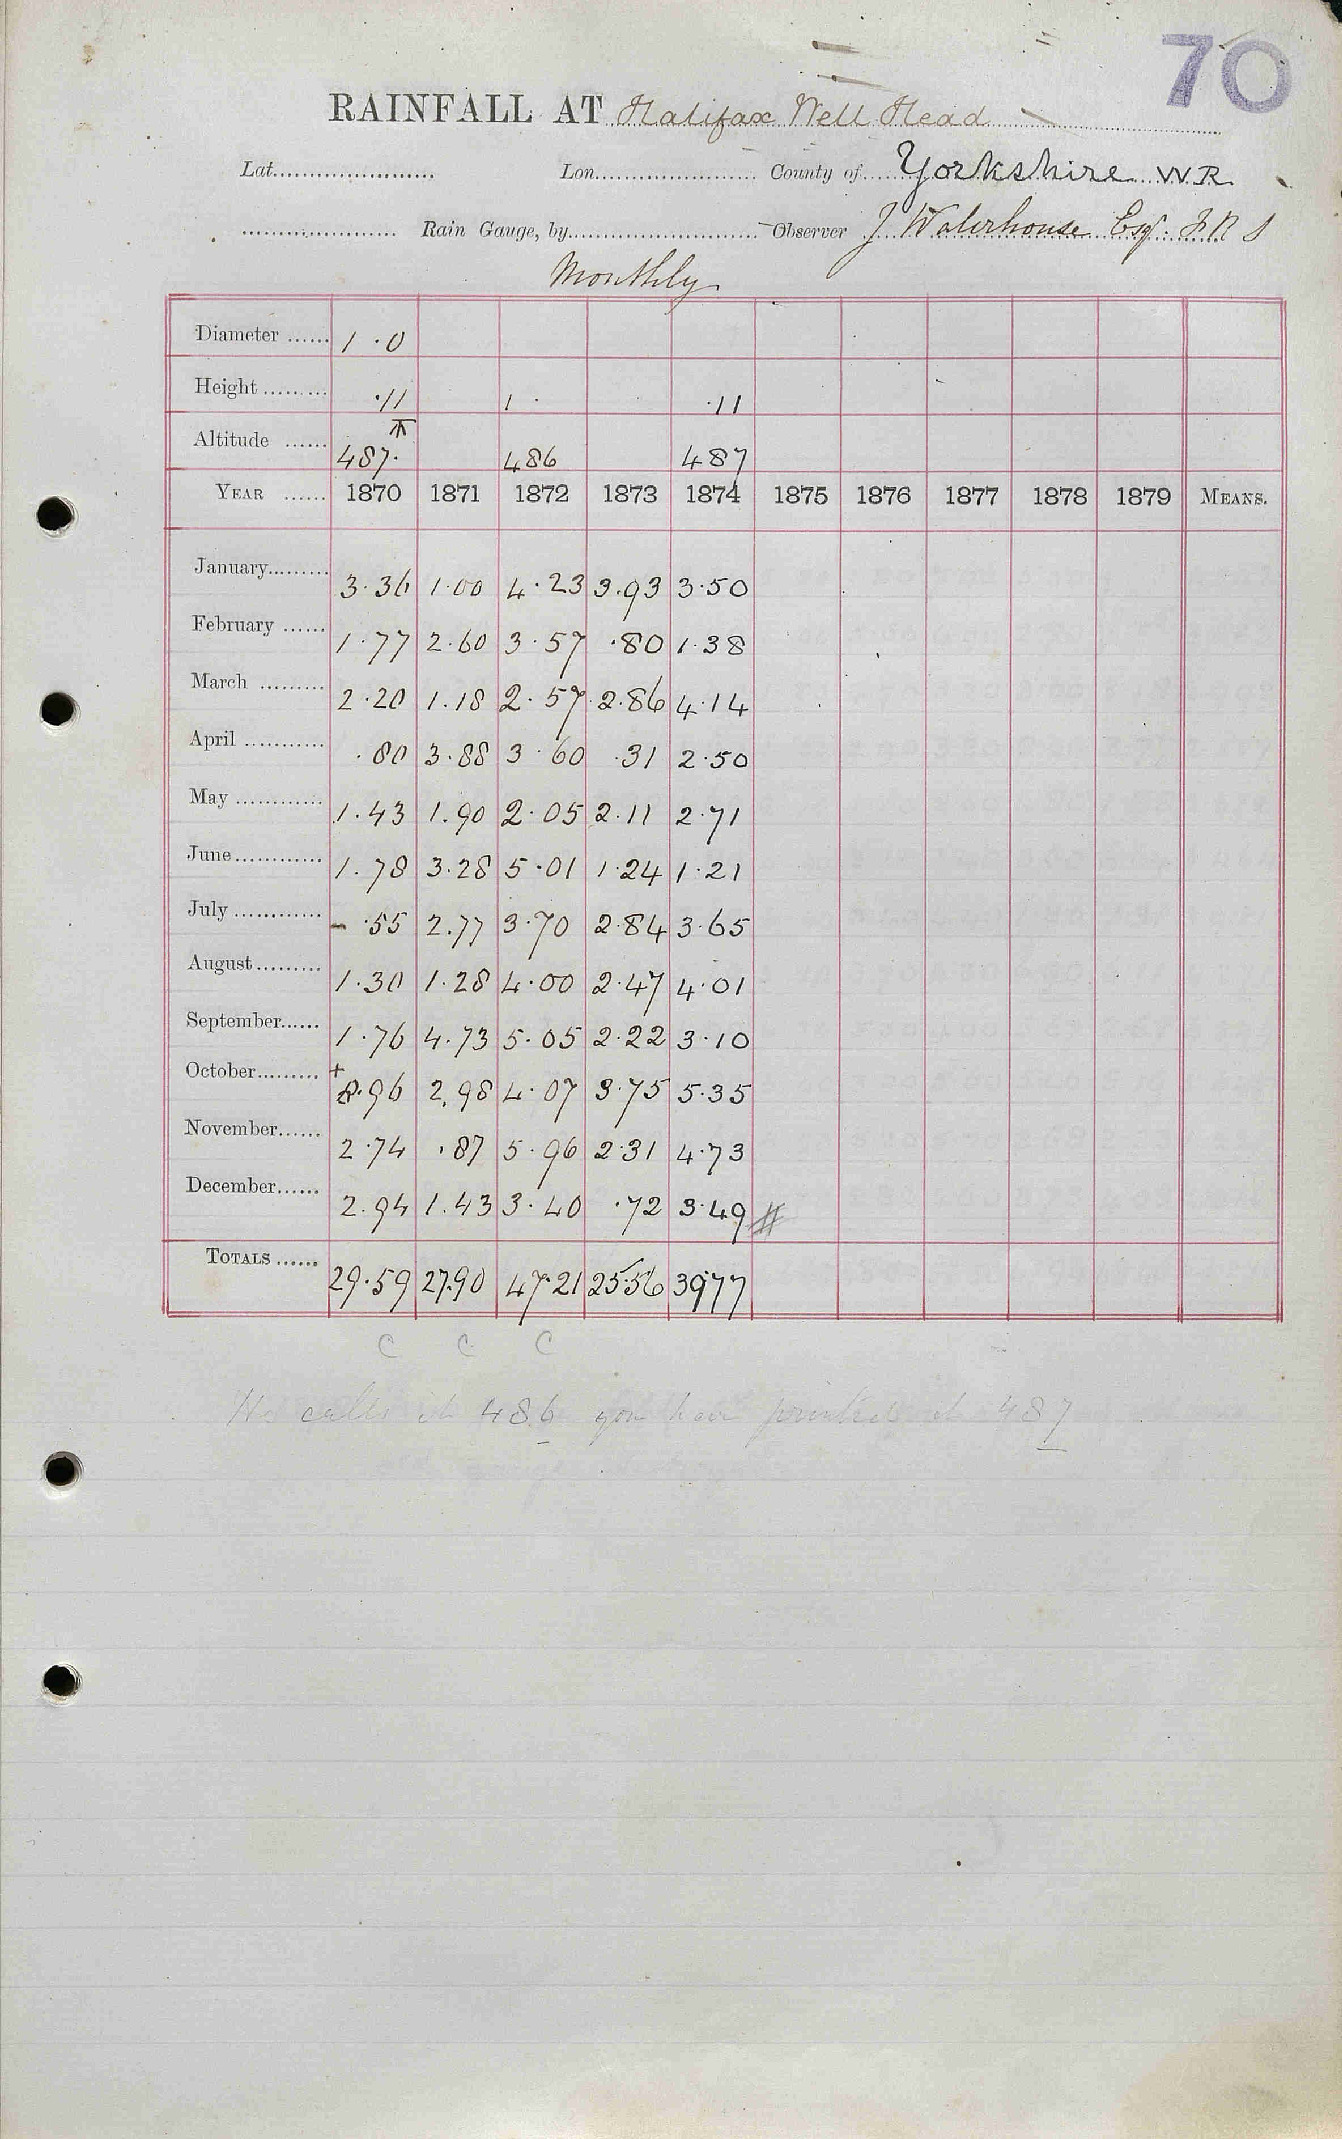 70
RAINFALL AT Halifax Well Head
Lat. Lon. County of Yorkshire W.R.
Rain Gauge, by Observer J Waterhouse Esq. F R S
Monthly
Diameter 1.0
Height .11 1. .11
Altitude 487. 486 487
YEAR 1870 1871 1872 1873 1874 1875 1876 1877 1878 1879 MEANS.
January 3.36 1.00 4.23 3.93 3.50
February 1.77 2.60 3.57 .80 1.38
March 2.20 1.18 2.57 2.86 4.14
April .80 3.88 3.60 .31 2.50
May 1.43 1.90 2.05 2.11 2.71
June 1.78 3.28 5.01 1.24 1.21
July - .55 2.77 3.70 2.84 3.65
August 1.30 1.28 4.00 2.47 4.01
September 1.76 4.73 5.05 2.22 3.10
October + 8.96 2.98 4.07 3.75 5.35
November 2.74 .87 5.96 2.31 4.73
December 2.94 1.43 3.40 .72 3.49 #
TOTALS 29.59 27.90 47.21 25.56 39.77
C C C
He calls it 486 you have printed it 487